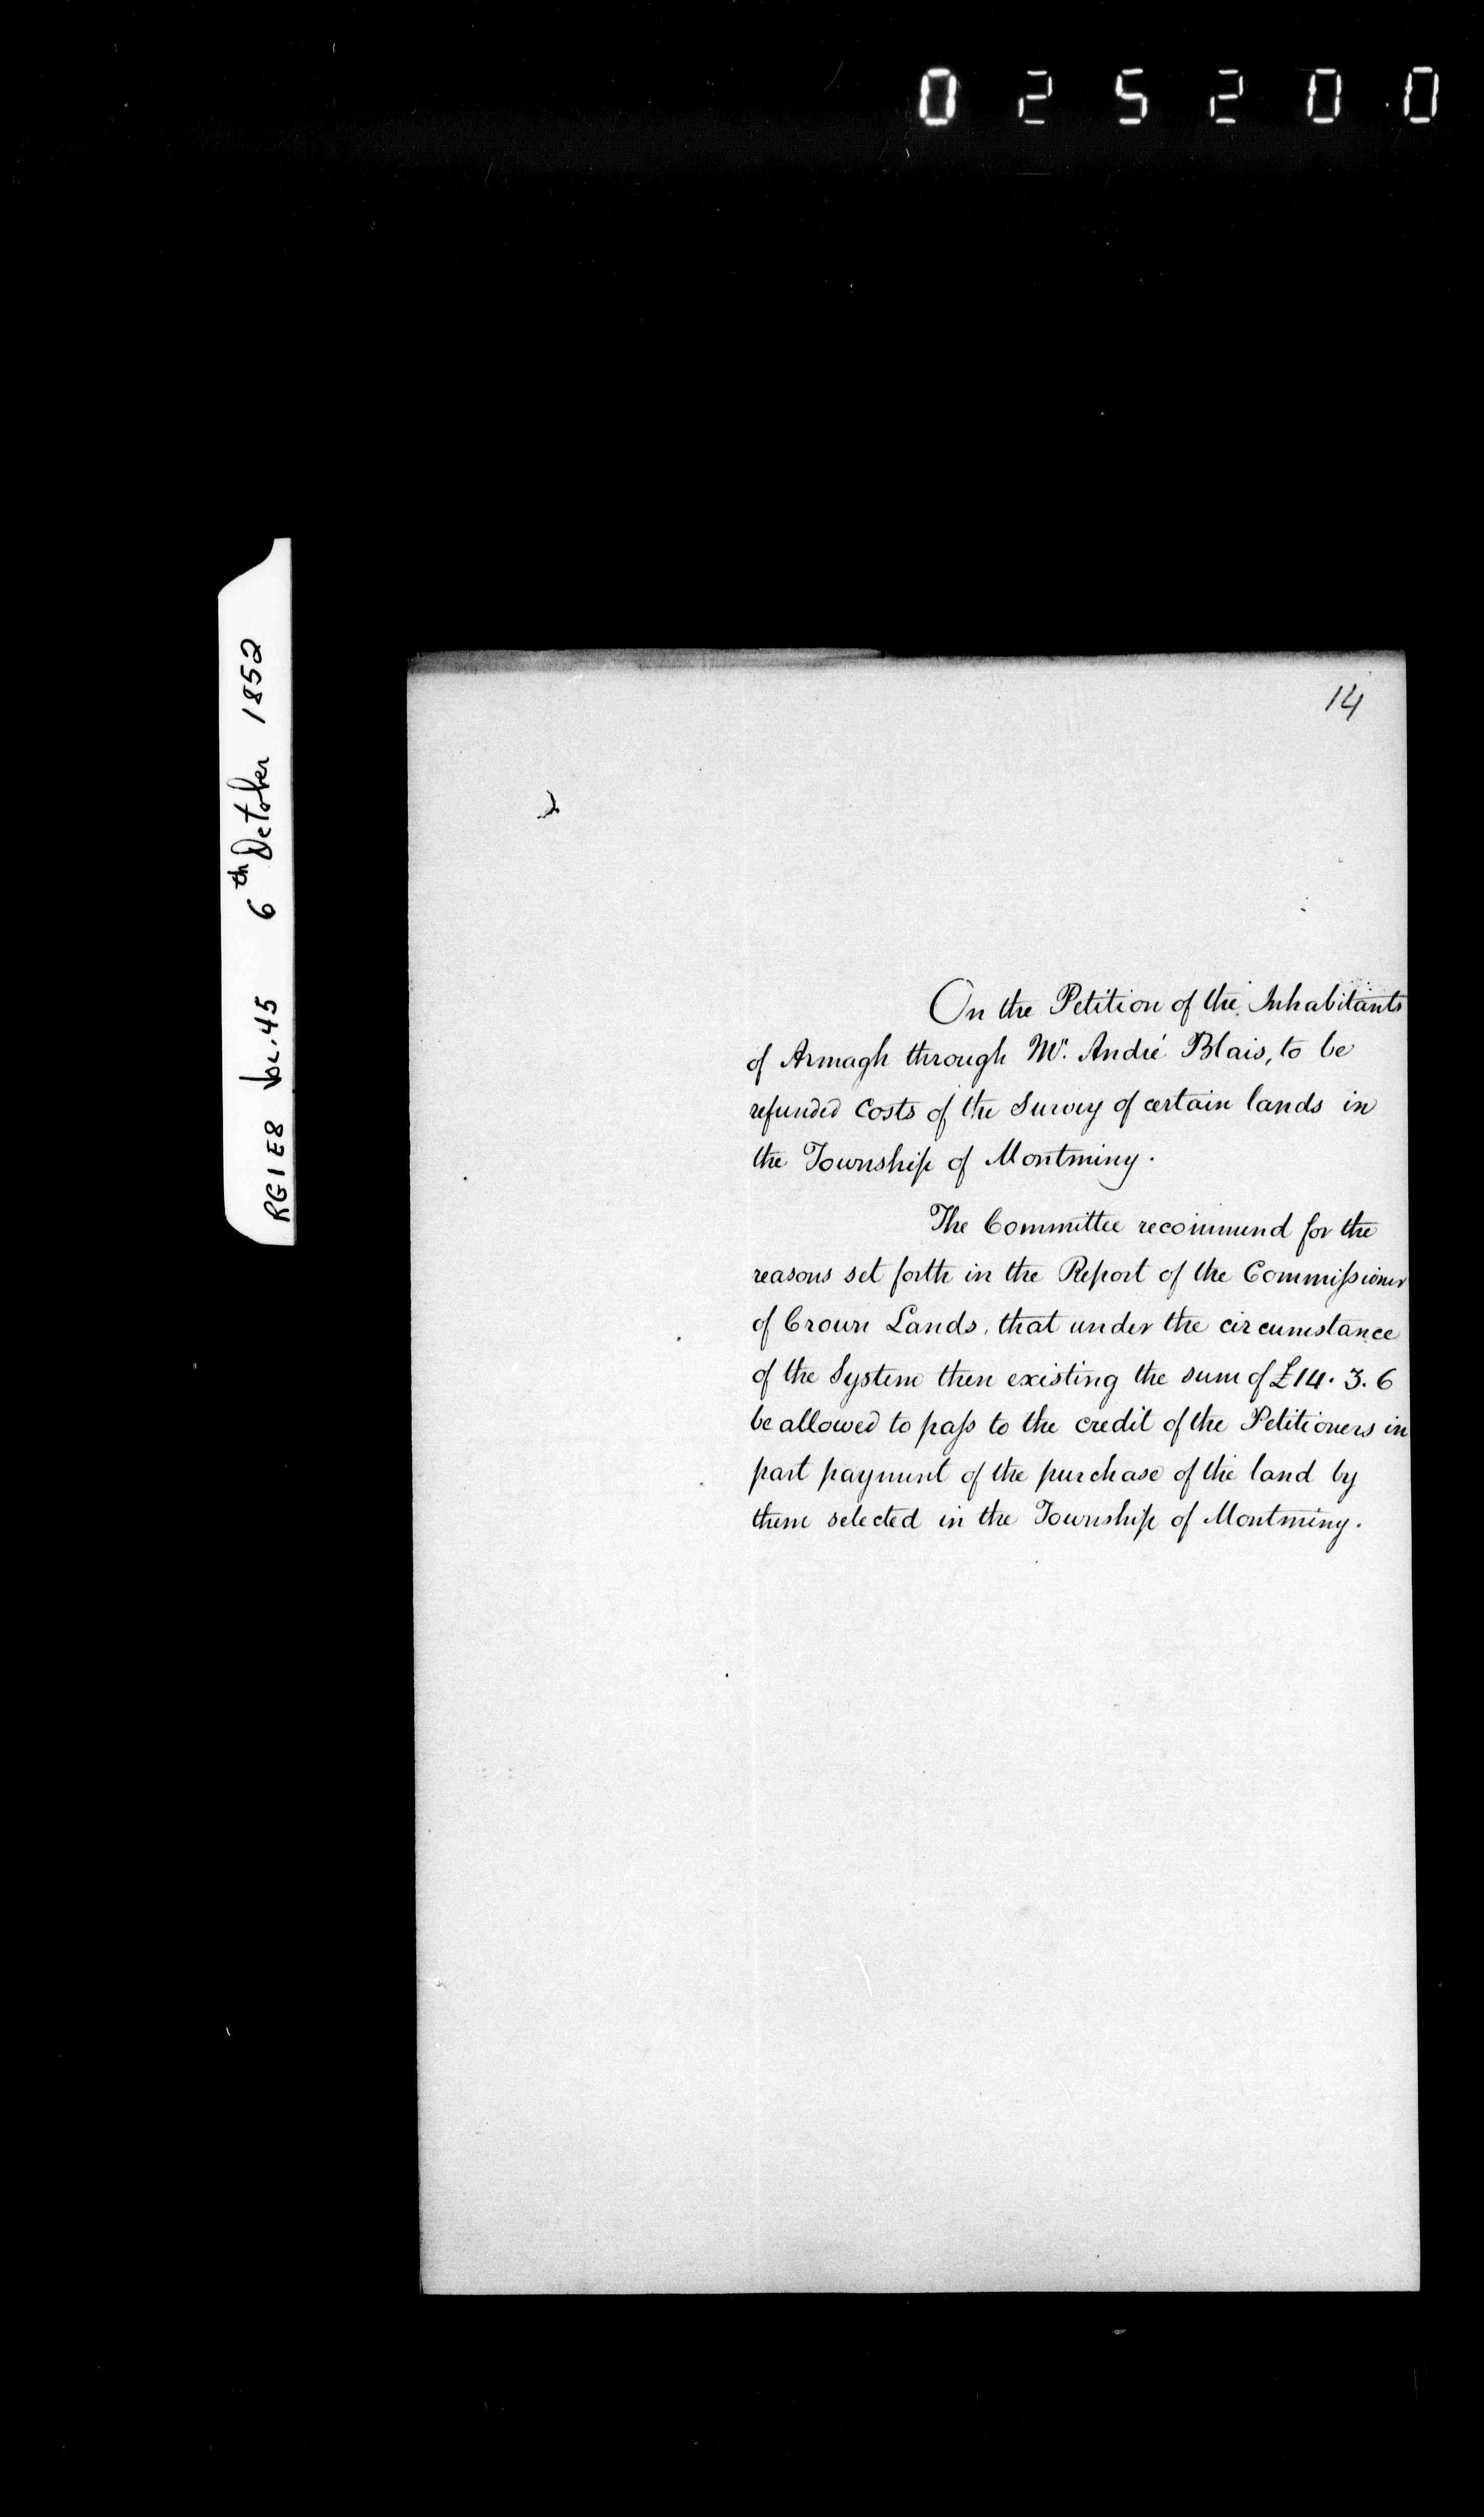 025200
RG1E8 Vol.45 6th October 1852
14
On the Petition of the Inhabitants
of Armagh through Mr. André Blais, to be
refunded Costs of the Survey of certain lands in
the Township of Montminy.
The Committee recommend for the
reasons set forth in the Report of the Commissioner
of Crown Lands, that under the circumstance
of the System then existing the sum of £14. 3. 6
be allowed to pass to the credit of the Petitioners in
part payment of the purchase of the land by
them selected in the Township of Montminy.